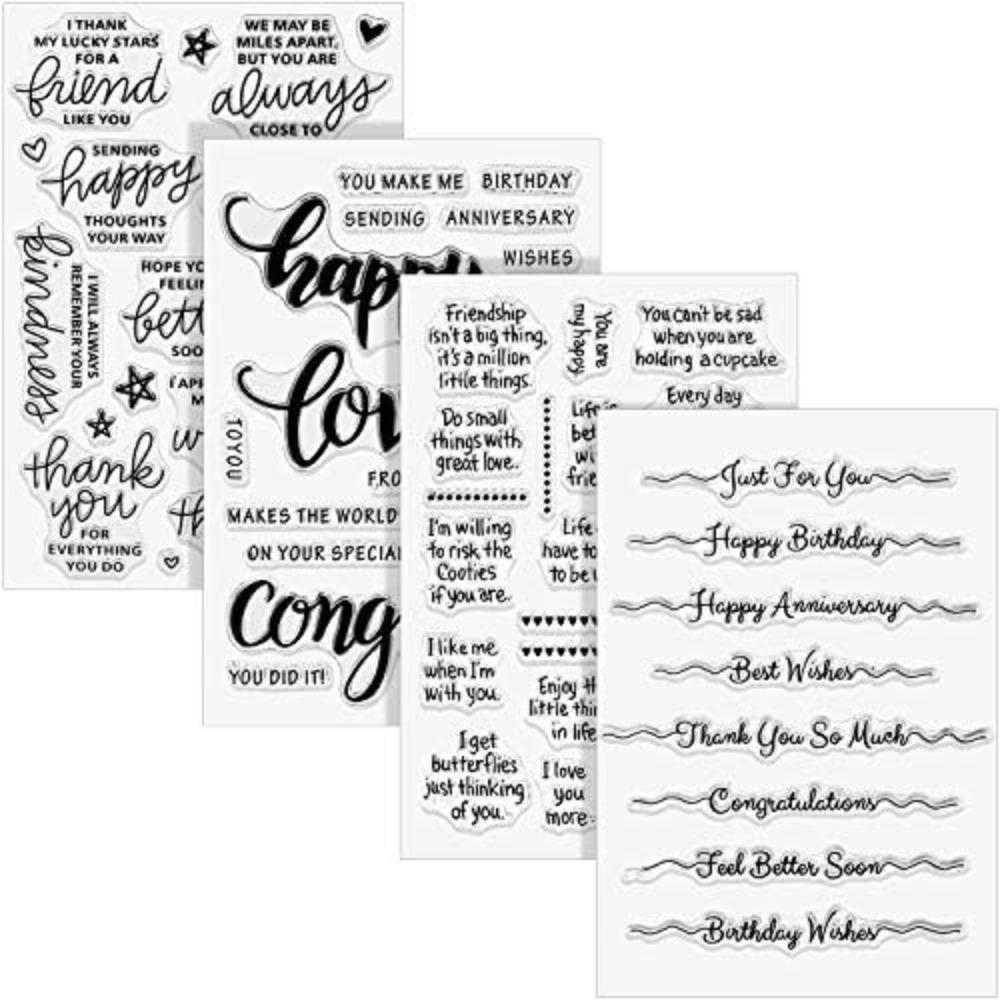 I THANK
MY LUCKY STARS
FOR A
friend
LIKE YOU
WE MAY BE
MILES APART,
BUT YOU ARE
always
CLOSE TO
SENDING
happy
THOUGHTS
YOUR WAY
kindness
I WILL ALWAYS
REMEMBER YOUR
HOPE YO
FEELIN
bett
SOO
I APP
M
thank
you
FOR
EVERYTHING
YOU DO
YOU MAKE ME
BIRTHDAY
SENDING
ANNIVERSARY
happy
WISHES
lov
TO YOU
FRO
MAKES THE WORLD
ON YOUR SPECIAL
Cong
YOU DID IT!
Friendship
isn't a big thing,
it's a million
little things.
You are
my happy
You can't be sad
when you are
holding a cupcake.
Every day
Do small
things with
great love..
Life is
bet
wi
frie
I'm willing
to risk the
Cooties
if you are..
Life
have to
to be
I like me
when I'm
with you.
Enjoy th
little thin
in life
I get
butterflies
just thinking
of you.
I love
you
more
Just For You
Happy Birthday
Happy Anniversary
Best Wishes
Thank You So Much
Congratulations
Feel Better Soon
Birthday Wishes